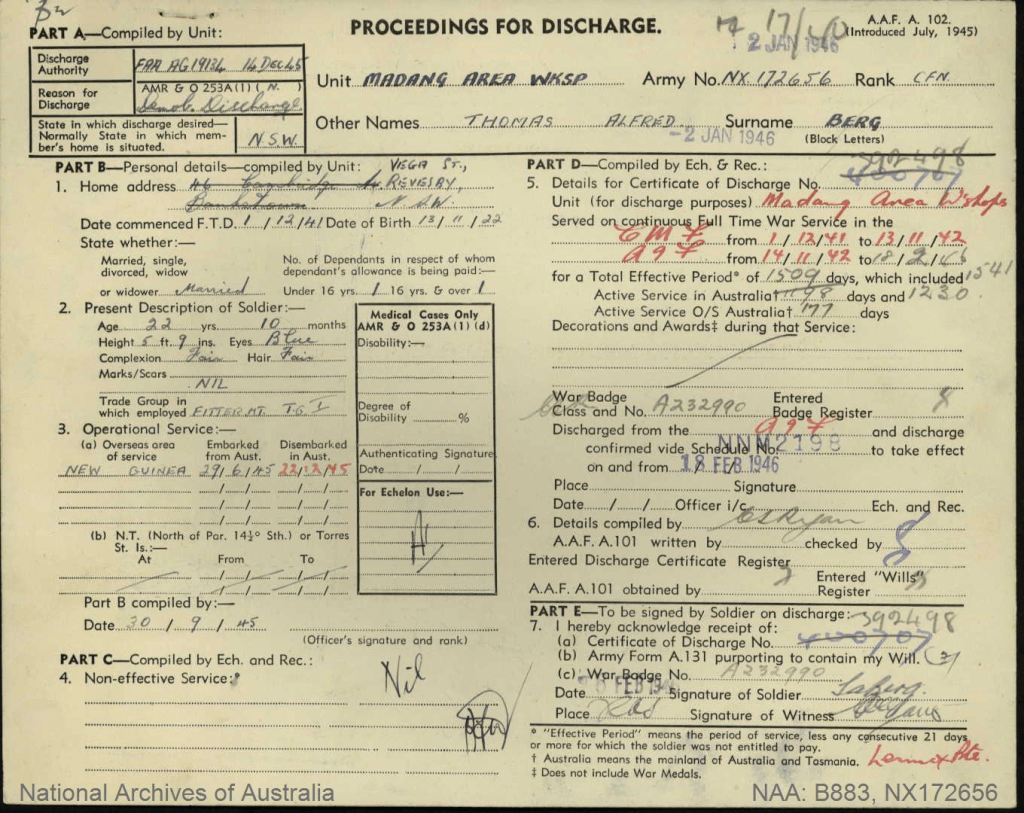 PROCEEDINGS FOR DISCHARGE.
A.A.F. A. 102.
(Introduced July, 1945)
2 JAN 1946
PART A—Compiled by Unit:
Discharge Authority FAR AG 19134 14 DEC 45
Reason for Discharge AMR & O 253A(1) (N.) Demob. Discharge
State in which discharge desired—Normally State in which member's home is situated. N.S.W.
Unit MADANG AREA WKSP Army No. NX 172656 Rank CFN.
Other Names THOMAS ALFRED Surname BERG
-2 JAN 1946 (Block Letters)
PART B—Personal details—compiled by Unit: VEGA ST.,
1. Home address 46 REVESBY,
Bankstown N.S.W.
Date commenced F.T.D. 1 / 12 / 41 Date of Birth 13 / 11 / 22
State whether:—
Married, single, divorced, widow or widower Married
No. of Dependants in respect of whom dependant's allowance is being paid:—
Under 16 yrs. 1 16 yrs. & over 1
2. Present Description of Soldier:—
Age 22 yrs. 10 months
Height 5 ft. 9 ins. Eyes Blue
Complexion Fair Hair Fair
Marks/Scars NIL
Trade Group in which employed FITTER MT. TG I
Medical Cases Only
AMR & O 253A(1) (d)
Disability:—
Degree of Disability %
Authenticating Signature
Date / /
For Echelon Use:—
A1
3. Operational Service:—
(a) Overseas area of service Embarked from Aust. Disembarked in Aust.
NEW GUINEA 29/6/45 22/12/45
(b) N.T. (North of Par. 14½° Sth.) or Torres St. Is.:—
At From To
Part B compiled by:—
Date 30 / 9 / 45
(Officer's signature and rank)
PART C—Compiled by Ech. and Rec.:
4. Non-effective Service:* Nil
PART D—Compiled by Ech. & Rec.:
392498
5. Details for Certificate of Discharge No. 400707
Unit (for discharge purposes) Madang Area W'shops
Served on continuous Full Time War Service in the
CMF from 1 / 12 / 41 to 13 / 11 / 42
AIF from 14 / 11 / 42 to 18 / 2 / 46
for a Total Effective Period* of 1509 days, which included 1541
Active Service in Australia† 1198 days and 1230
Active Service O/S Australia† 177 days
Decorations and Awards‡ during that Service:
War Badge Class and No. A232990 Entered Badge Register
Discharged from the AIF and discharge
confirmed vide Schedule No. NNM2198 to take effect
on and from 18 FEB 1946
Place Signature
Date / / Officer i/c Ech. and Rec.
6. Details compiled by CS Ryan
A.A.F. A.101 written by checked by
Entered Discharge Certificate Register
A.A.F. A.101 obtained by Entered "Wills" Register
PART E—To be signed by Soldier on discharge:—
392498
7. I hereby acknowledge receipt of:
(a) Certificate of Discharge No. 400707
(b) Army Form A.131 purporting to contain my Will.
(c) War Badge No. A232990
Date FEB 194 Signature of Soldier TaBerg.
Place Signature of Witness
* "Effective Period" means the period of service, less any consecutive 21 days or more for which the soldier was not entitled to pay.
† Australia means the mainland of Australia and Tasmania.
‡ Does not include War Medals.
National Archives of Australia
NAA: B883, NX172656